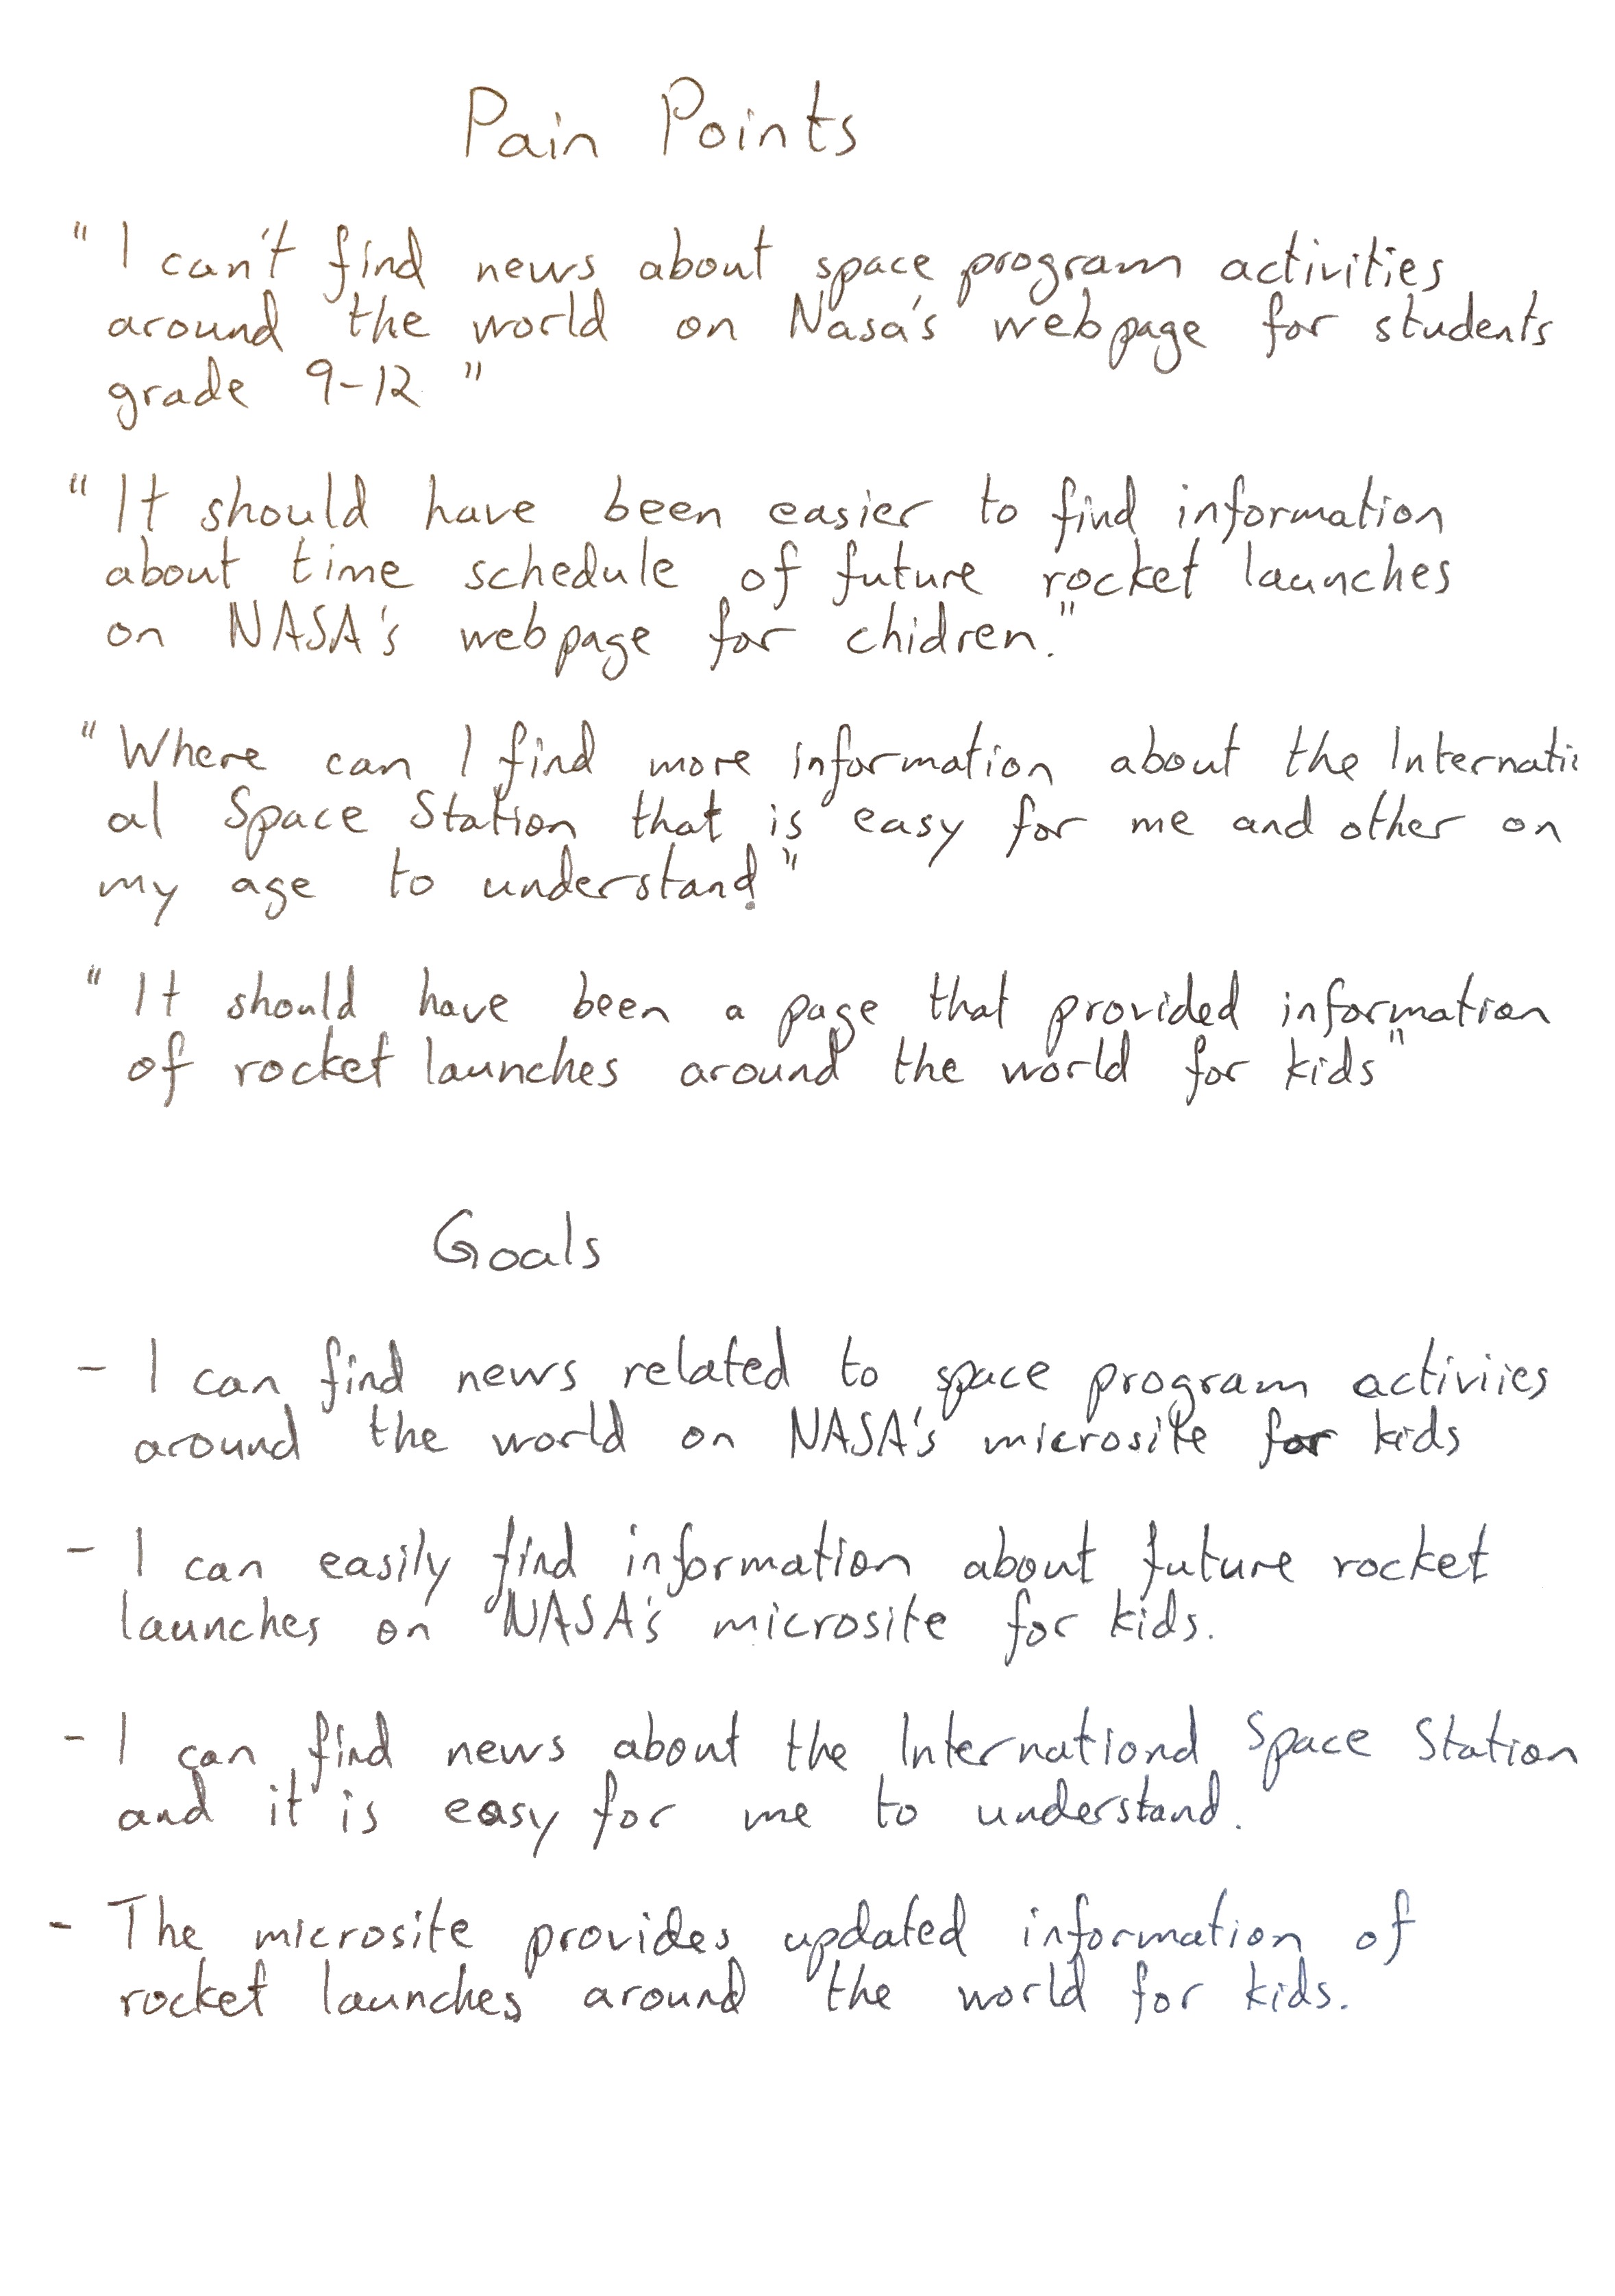 Pain Points
"I can't find news about space program activities
around the world on Nasa's webpage for students
grade 9-12"
"It should have been easier to find information
about time schedule of future rocket launches
on NASA's webpage for chidren."
"Where can I find more information about the Internati
al Space Station that is easy for me and other on
my age to understand?"
"It should have been a page that provided information
of rocket launches around the world for kids"
Goals
- I can find news related to space program activiies
around the world on NASA's microsite for kids
- I can easily find information about future rocket
launches on NASA's microsite for kids.
- I can find news about the International Space Station
and it is easy for me to understand.
- The microsite provides updated information of
rocket launches around the world for kids.